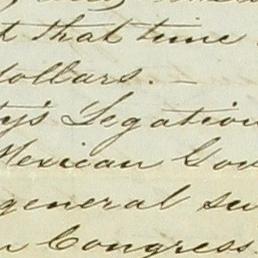 t that time
dollars. —
ty's Legation
Mexican Gov
general su
n Congress